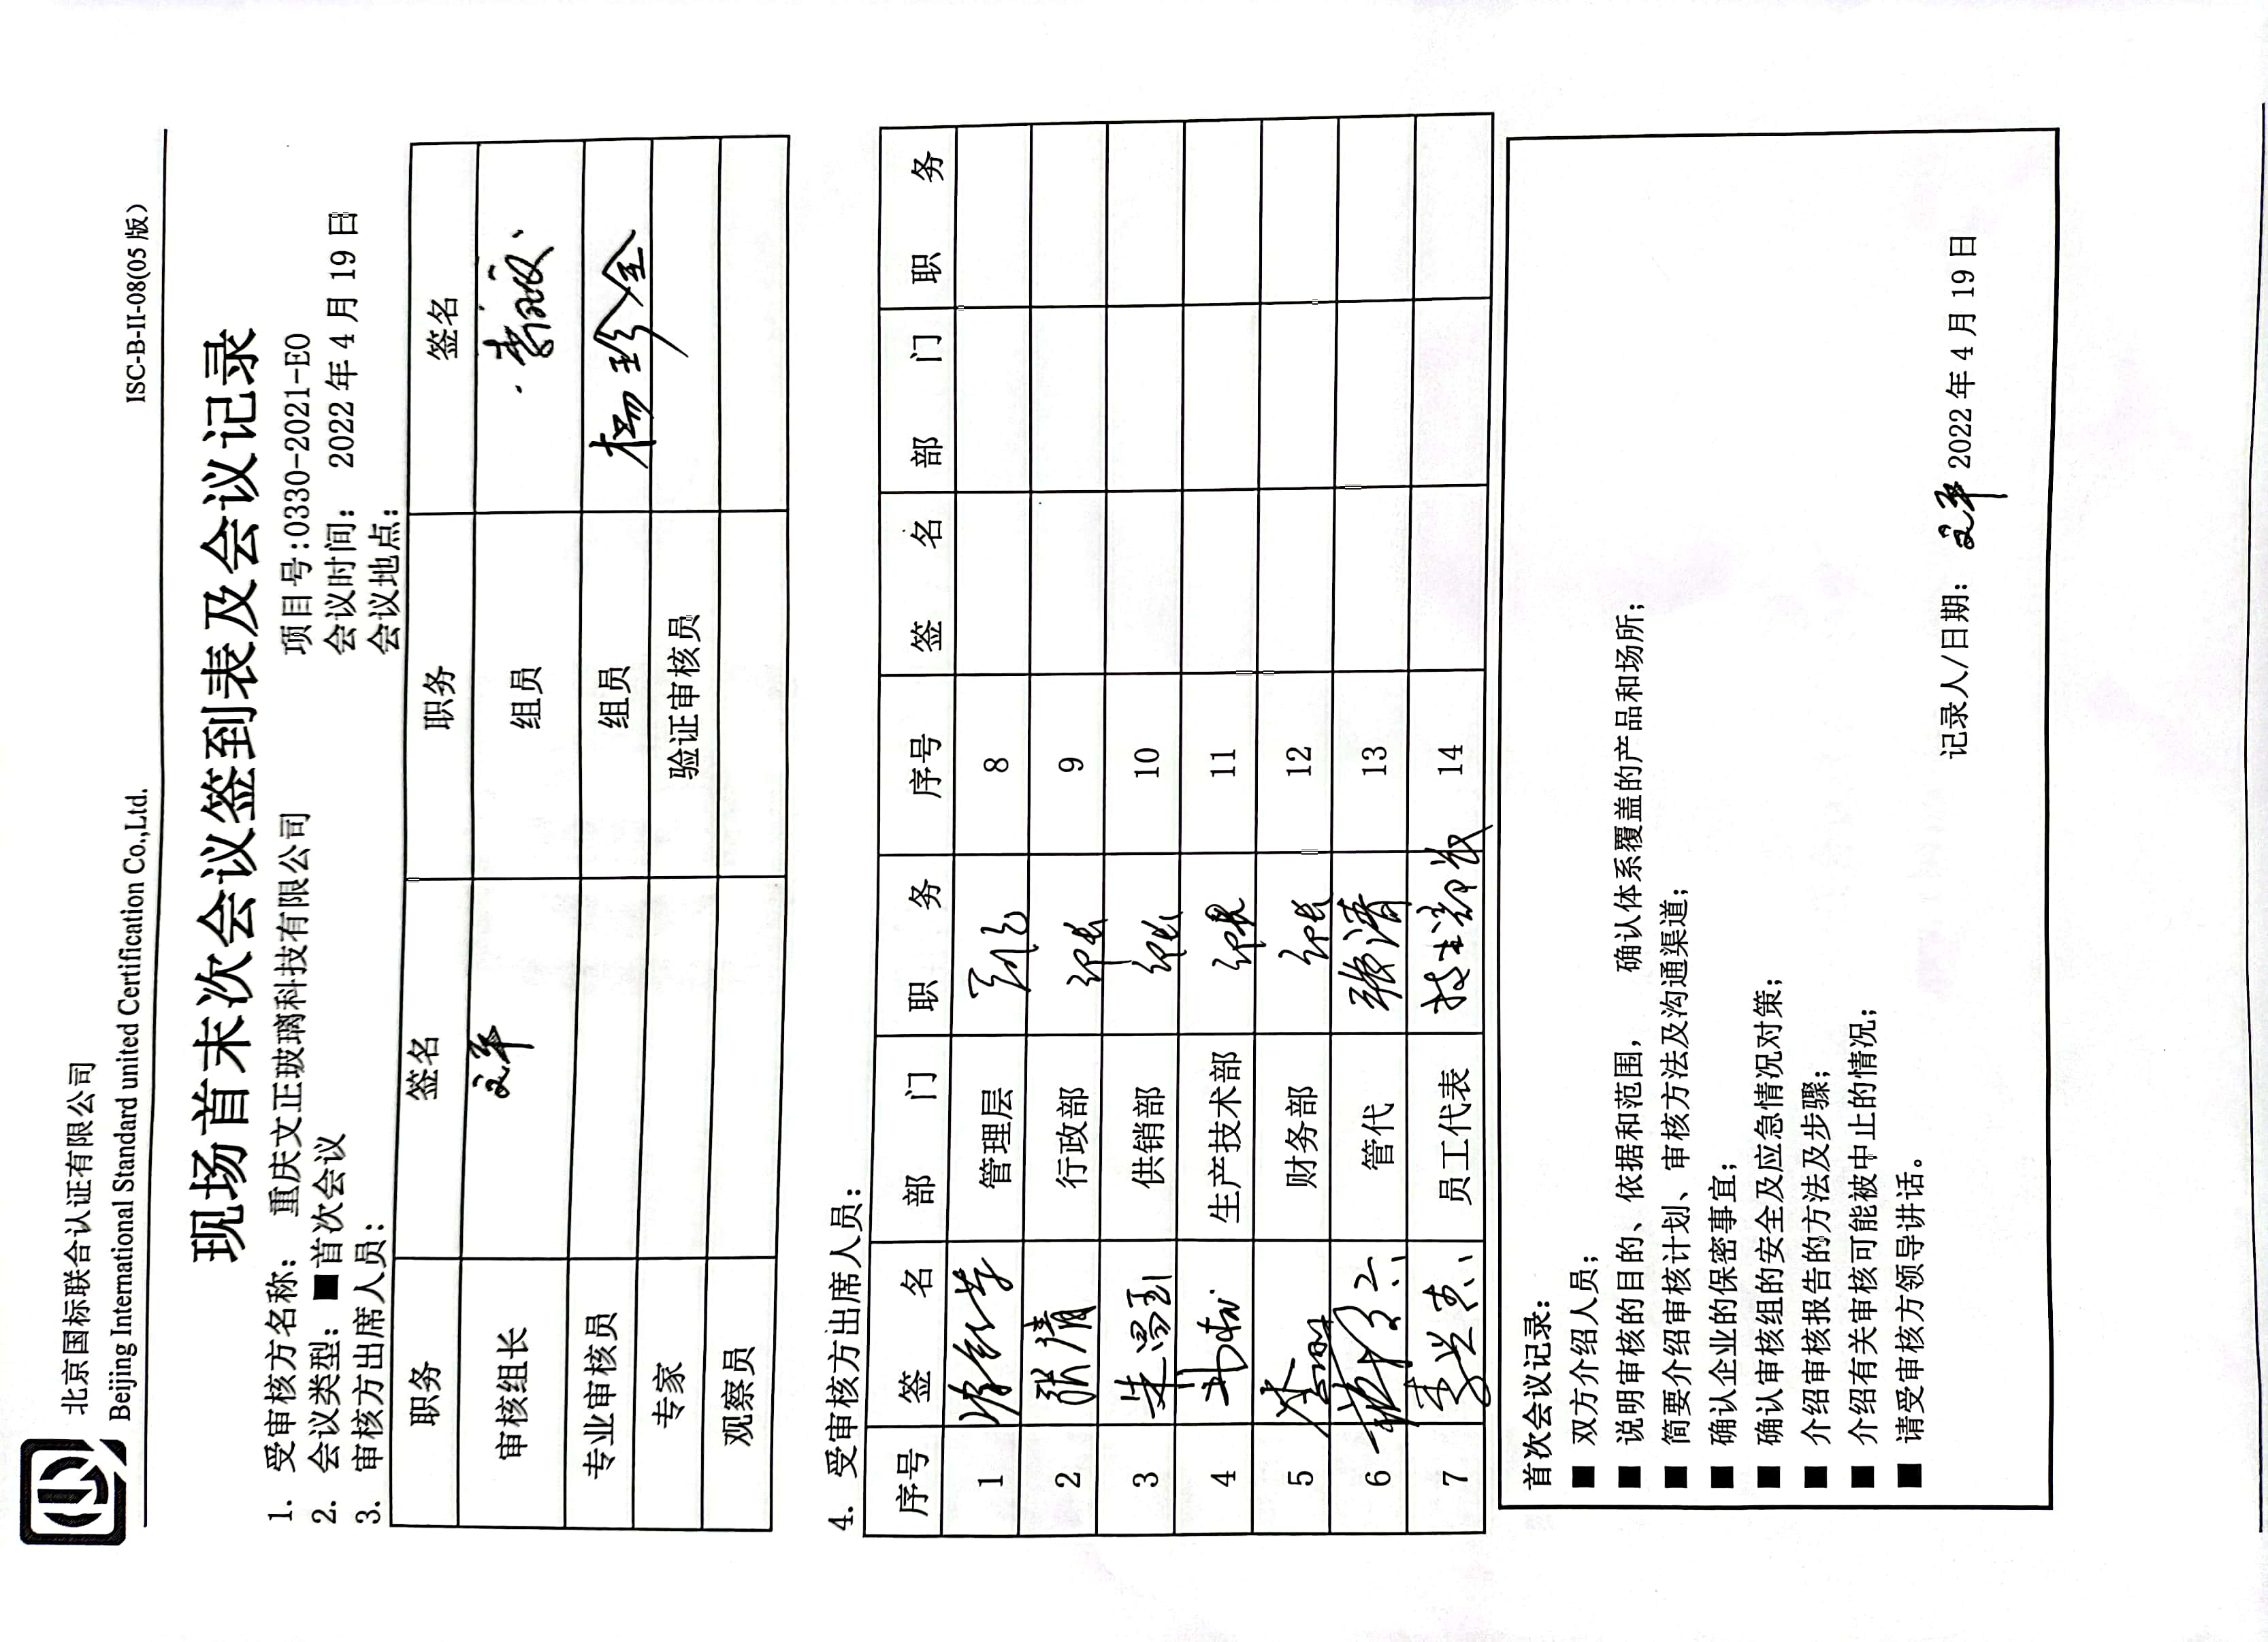 北京国标联合认证有限公司
Beijing International Standard united Certification Co.,Ltd. ISC-B-II-08(05 版)
现场首末次会议签到表及会议记录
1. 受审核方名称: 重庆文正玻璃科技有限公司 项目号:0330-2021-EO
2. 会议类型: ■首次会议 会议时间: 2022 年 4 月 19 日
3. 审核方出席人员: 会议地点:
职务 签名 职务 签名
审核组长 文平 组员
专业审核员 组员 杨珍全
专家 验证审核员
观察员
4. 受审核方出席人员:
序号 签 名 部 门 职 务 序号 签 名 部 门 职 务
1 管理层 8
2 张清 行政部 部长 9
3 供销部 部长 10
4 生产技术部 部长 11
5 李 财务部 部长 12
6 管代 张清 13
7 员工代表 14
首次会议记录:
■ 双方介绍人员;
■ 说明审核的目的、依据和范围, 确认体系覆盖的产品和场所;
■ 简要介绍审核计划、审核方法及沟通渠道;
■ 确认企业的保密事宜;
■ 确认审核组的安全及应急情况对策;
■ 介绍审核报告的方法及步骤;
■ 介绍有关审核可能被中止的情况;
■ 请受审核方领导讲话。
记录人/日期: 文平 2022 年 4 月 19 日